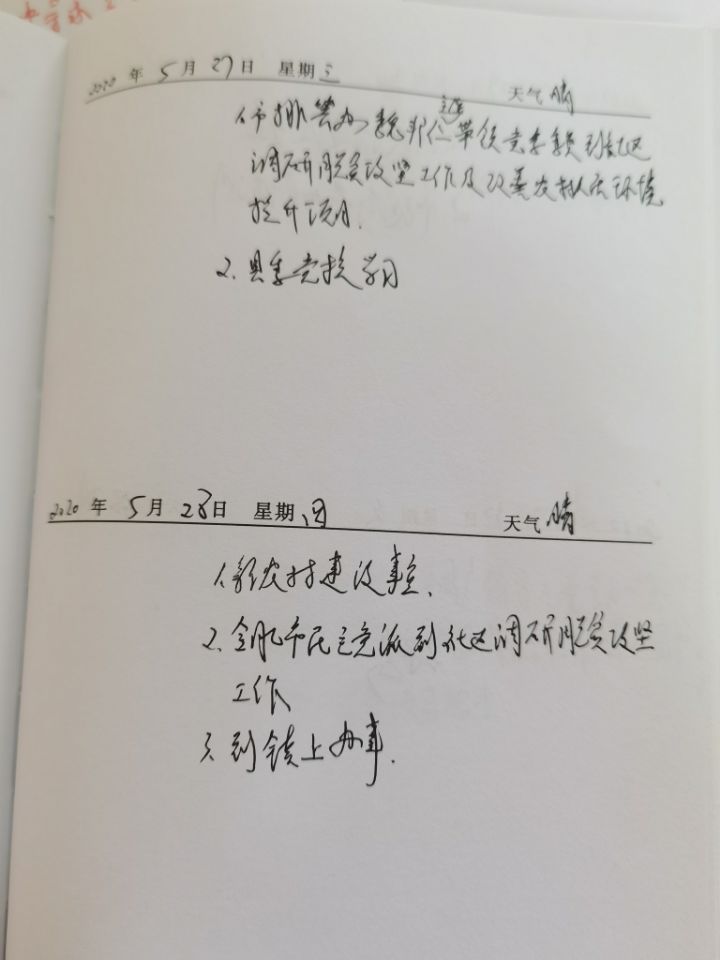 2020 年 5 月 27 日 星期 三 天气 晴
1. 市扶贫办 魏 主任 等 到社区
调研脱贫攻坚工作及改善农村人居环境
提升项目.
2. 县委党校学习
2020 年 5 月 28 日 星期 四 天气 晴
1. 新农村建设事宜.
2. 合肥市民主党派到社区调研脱贫攻坚
工作
3. 到镇上办事.